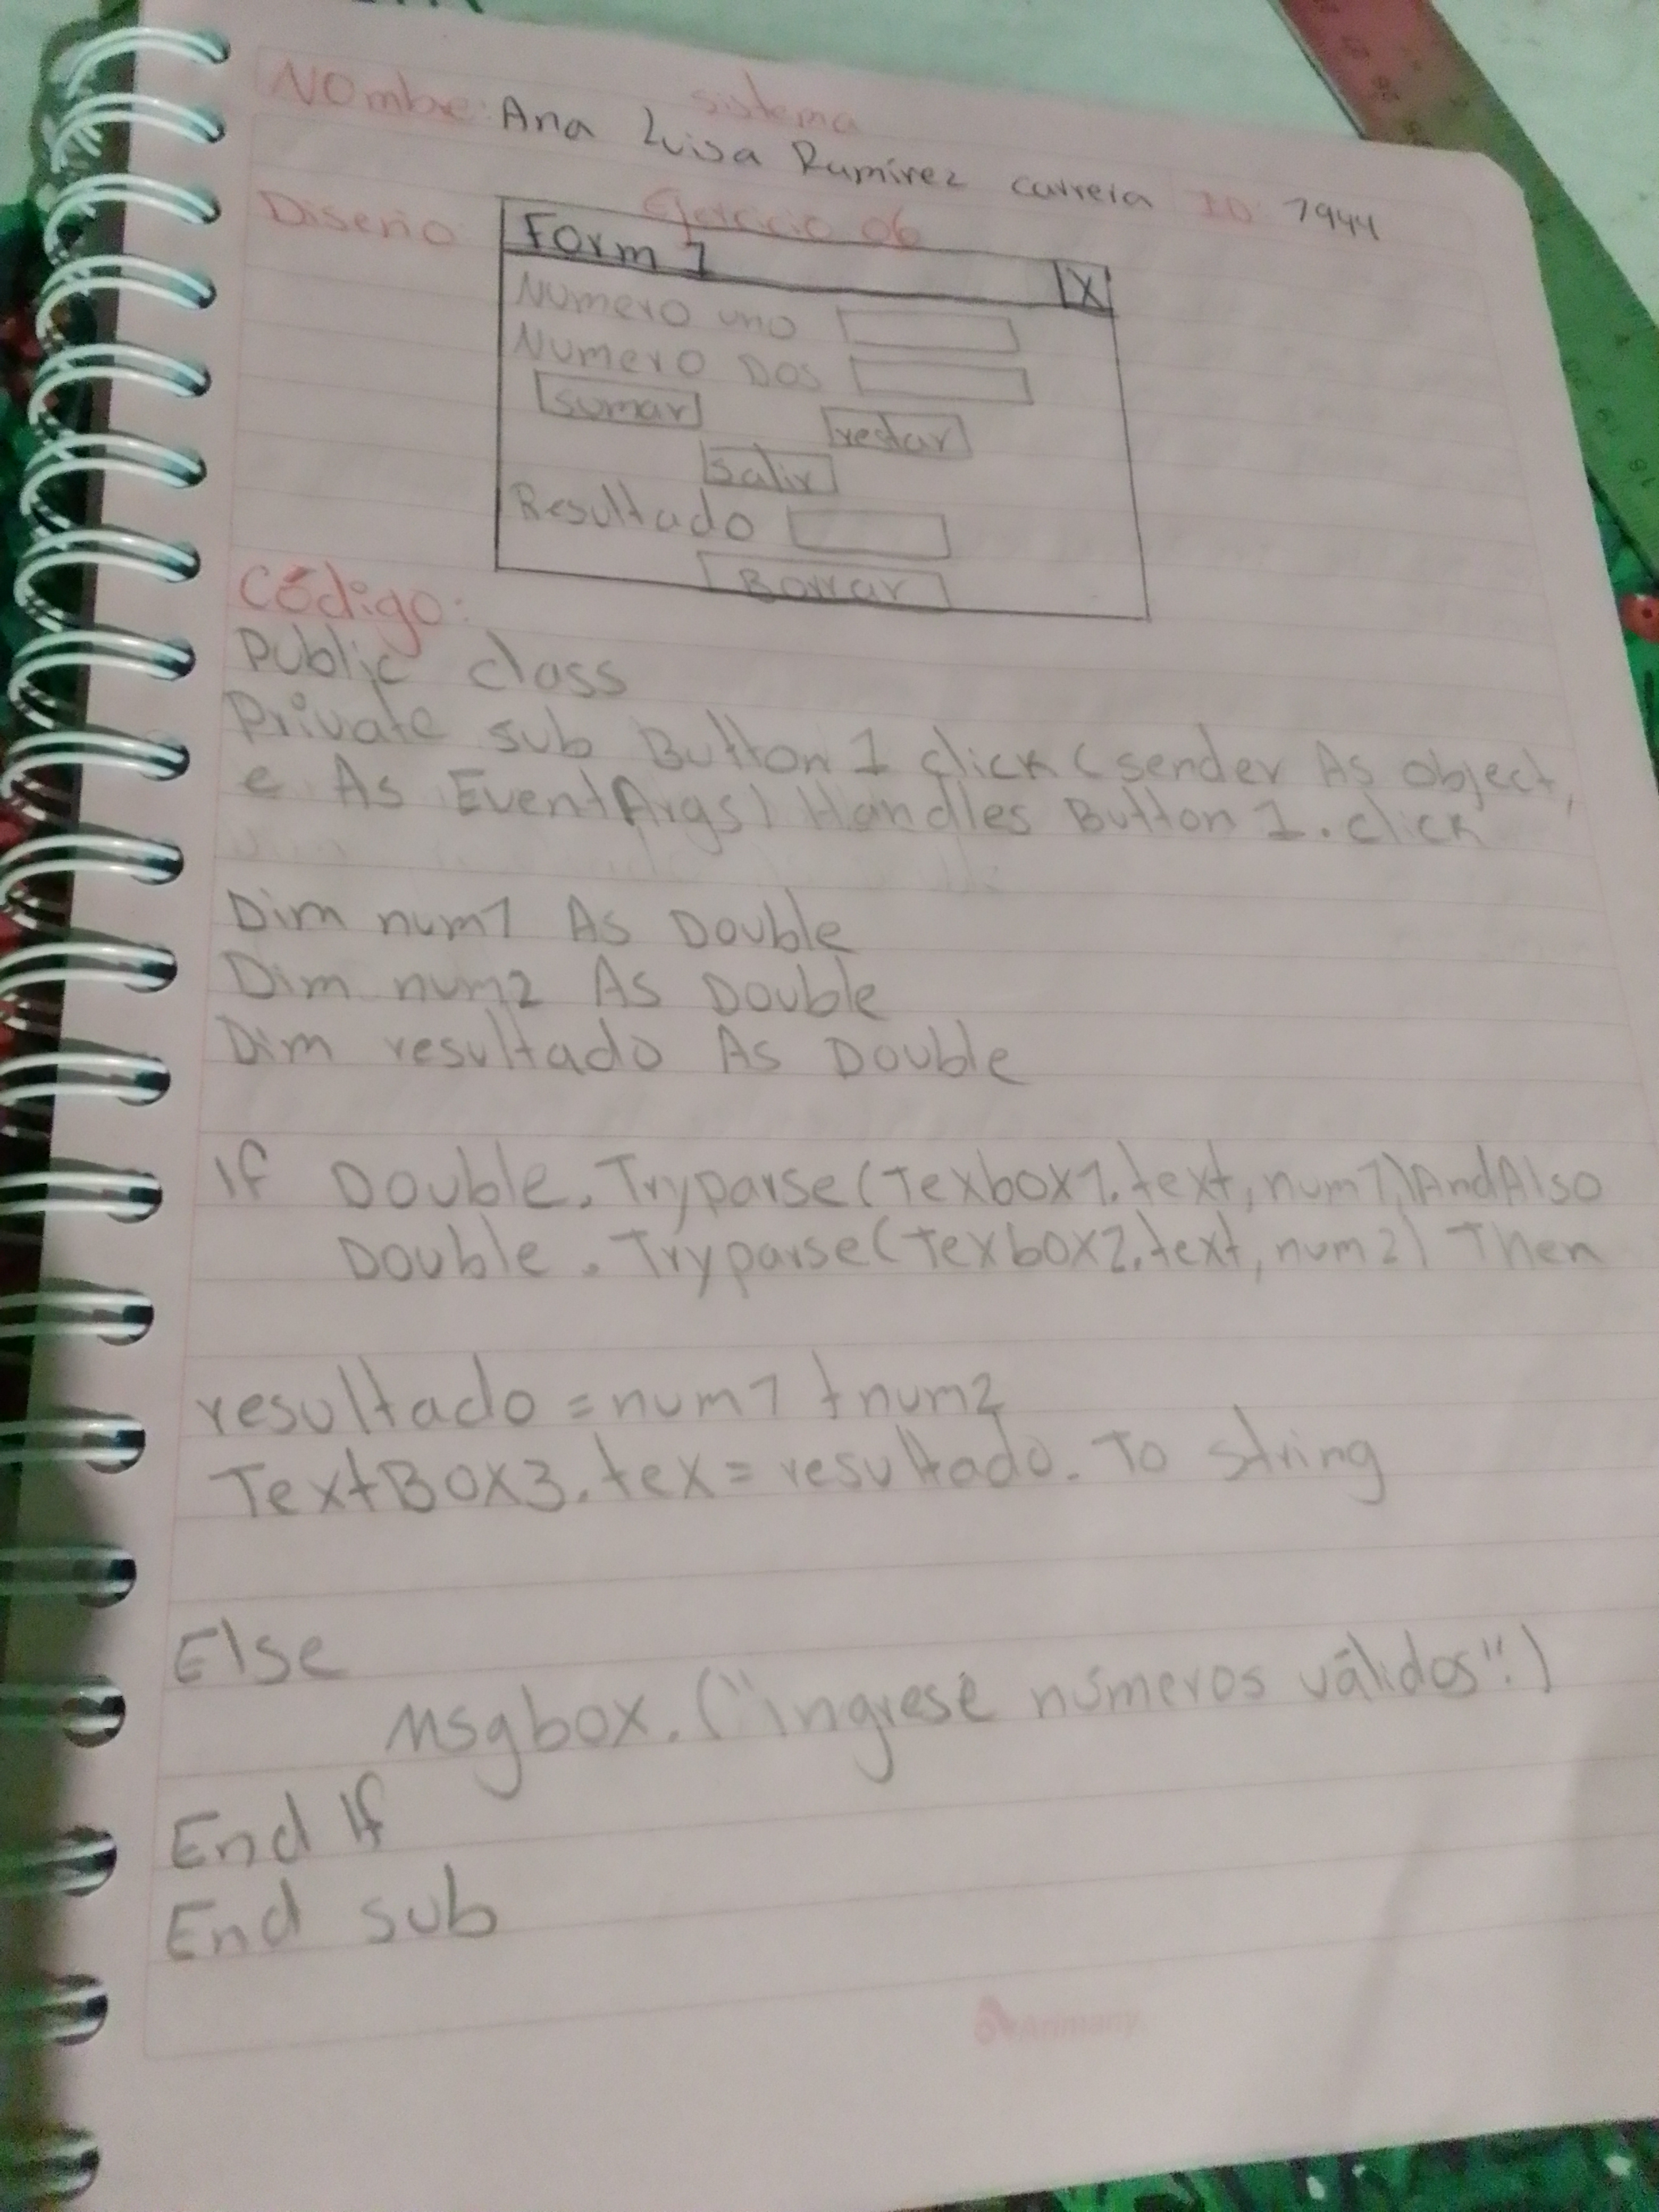 sistema
Nombre: Ana Luisa Ramírez carrera ID: 7944
Ejercicio 06
Diseño
Form 1 X
Numero uno
Numero Dos
sumar restar
Salir
Resultado
Borrar
Código:
Public class
Private sub Button 1 click (sender As object,
e As EventArgs) Handles Button 1. click
Dim num1 As Double
Dim num2 As Double
Dim resultado As Double
If Double. Tryparse (Texbox1. text, num1) AndAlso
Double. Tryparse (Texbox2. text, num2) Then
resultado = num1 + num2
TextBox3. tex = resultado. To string
Else
Msgbox. ("ingrese números válidos".)
End If
End sub